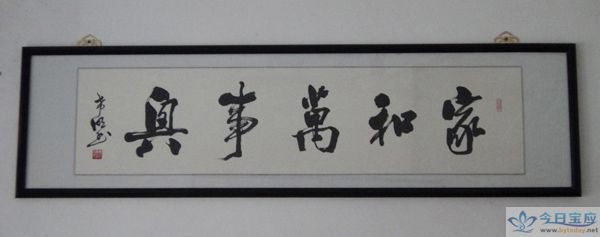 家和萬事興
今日宝应
www.bytoday.net